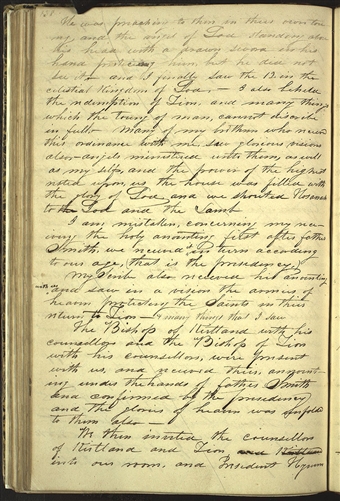 137
He was preaching to them in their own ton
=ug, and the angel of God standing above
his head with a drawn sword in his
hand protecting him, but he did not
see it— and I finally saw the 12 in the
celestial Kingdom of God,— I also beheld
the redemption of Zion, and many things
which the toung of man, cannot discribe
in full.— Many of my brethren who received
this ordinance with me, saw glorious visions
also— angels ministered unto them, as well
as my self, and the power of the highest
rested upon, us the house was filled with
the glory of God, and we shouted Hosanah
to the God and the Lamb
I am mistaken, concerning my receiv
ing the holy anointing first after father
Smith, we received in turn according
to our age, (that is the presidency,)
My Scribe also recieved his anointing
with us and saw in a vision the armies of
heaven protecting the Saints in their
return to Zion— & many things that I saw
The Bishop of Kirtland with his
counsellors and the Bishop of Zion
with his counsellors, were present
with us, and received their, annoint-
ing under the hands of father Smith
and confirmed by the presidency
and the glories of heaven was unfolded
to them also—
We then invited the counsellors
of Kirtland and Zion and Kirtland
into our room, and President Hyrum